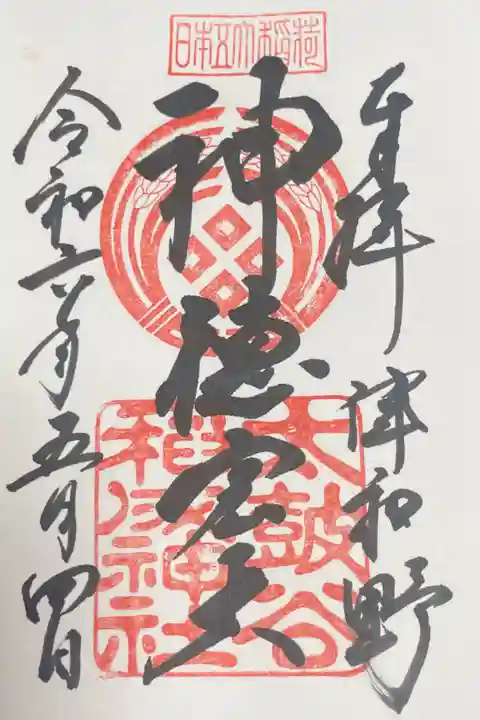 日本五大稲荷
奉拝 津和野
神徳宏大
太皷谷
稲成神社
令和六年五月四日